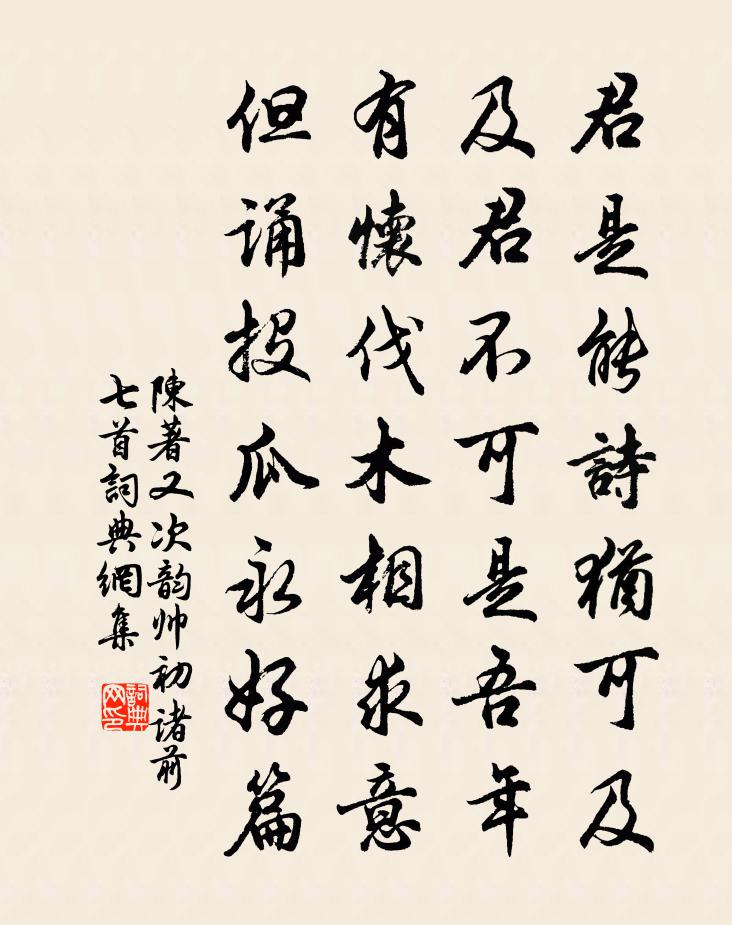 君是能詩猶可及
及君不可是吾年
有懷伐木相求意
但诵投瓜永好篇
陳著又次韵帅初诸前
七首詞典網集
詞典
网印